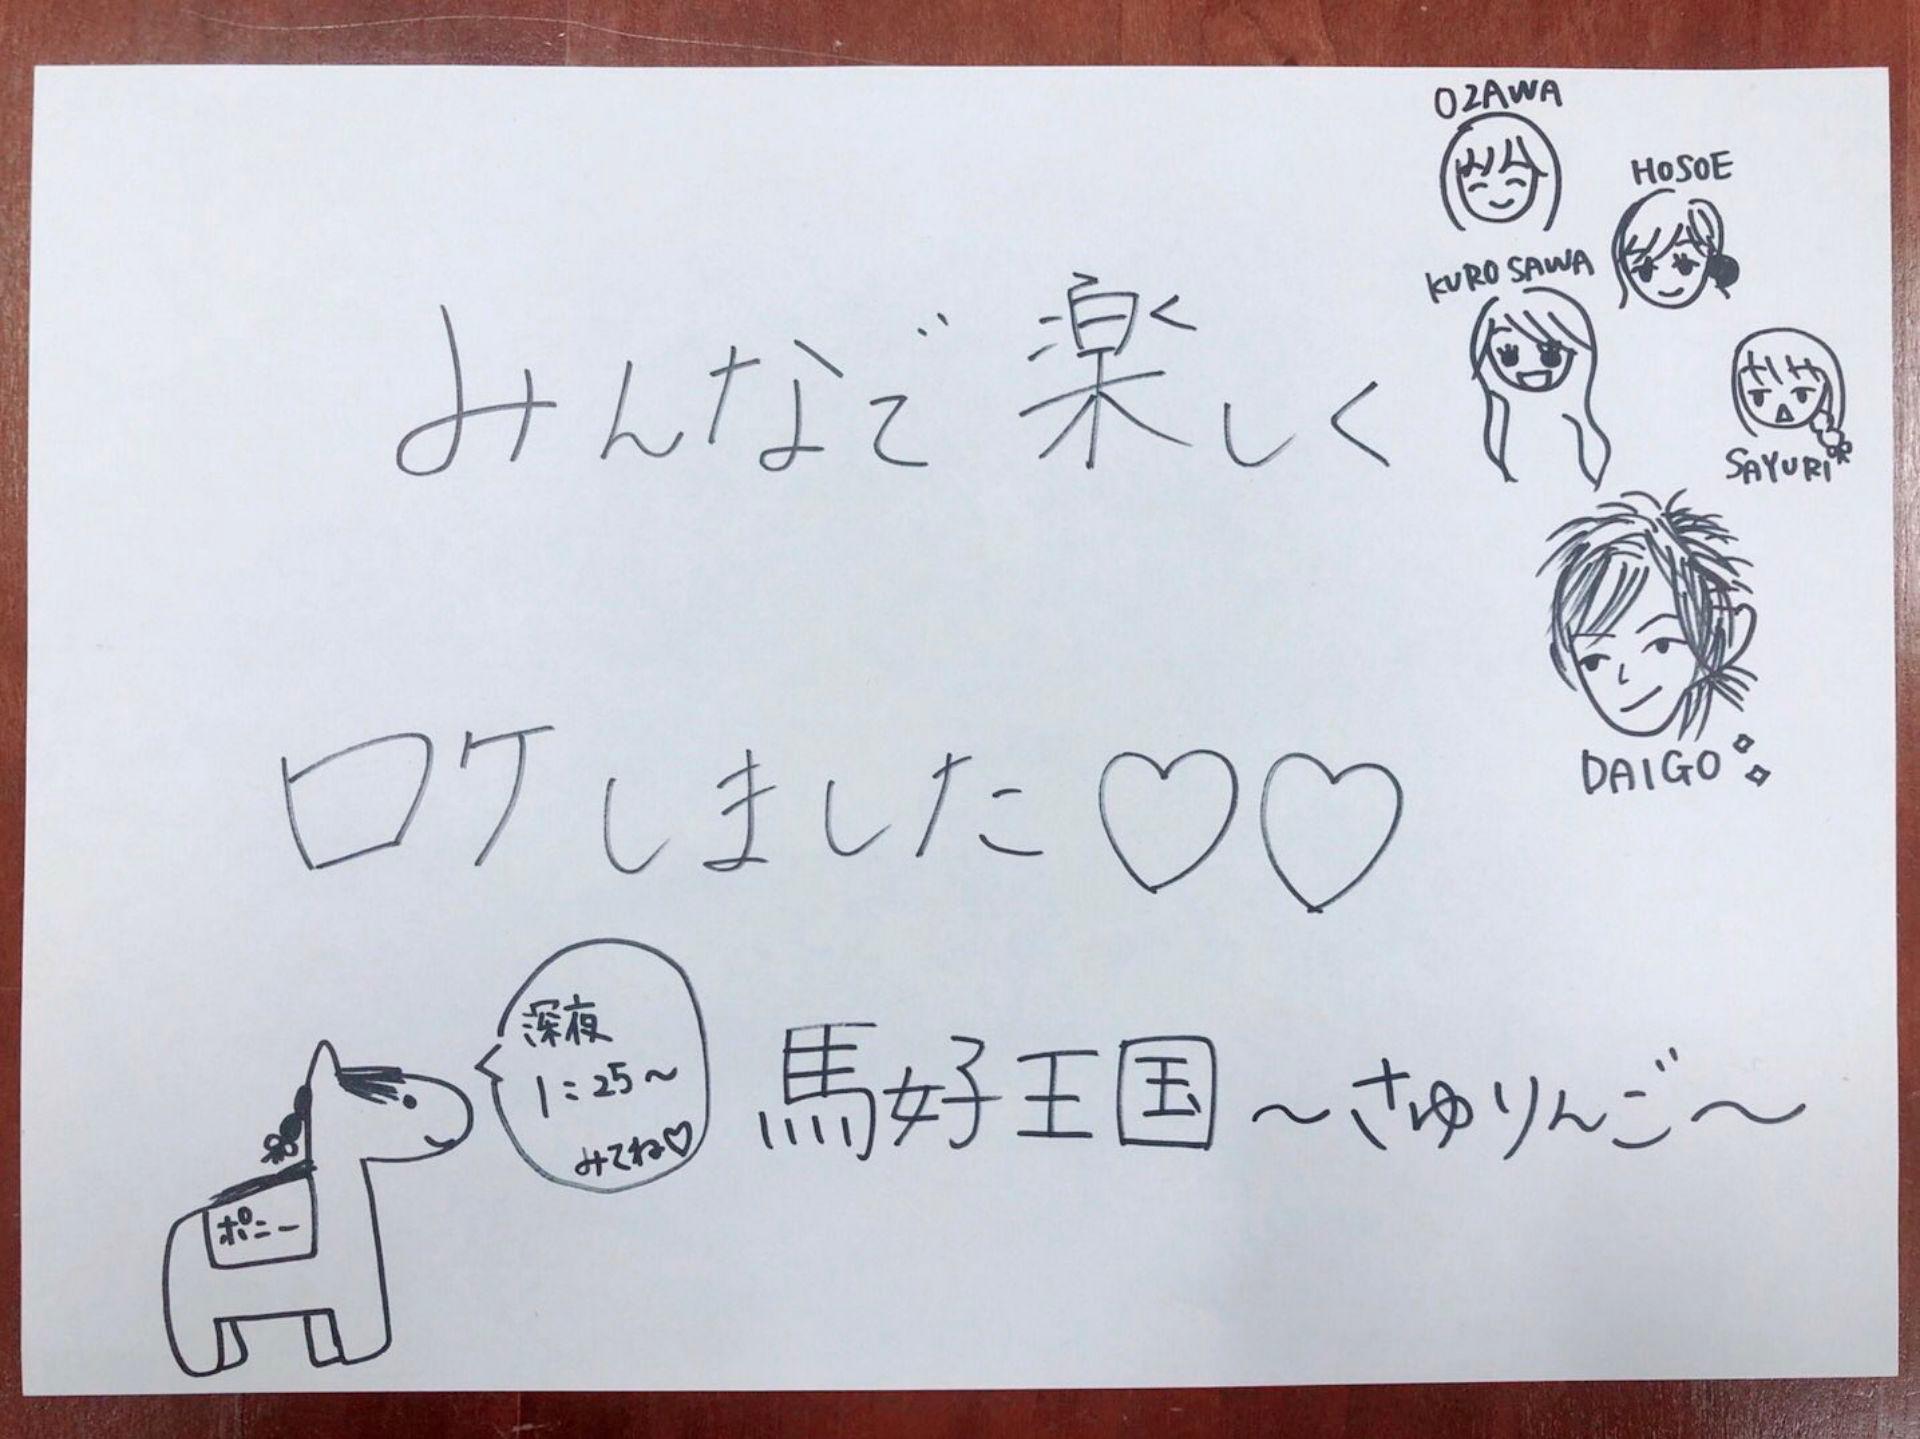 OZAWA
HOSOE
KUROSAWA
SAYURI
DAIGO
みんなで楽しく
ロケしました♡♡
深夜
1:25〜
みてね♡
馬好王国〜さゆりんご〜
ポニー